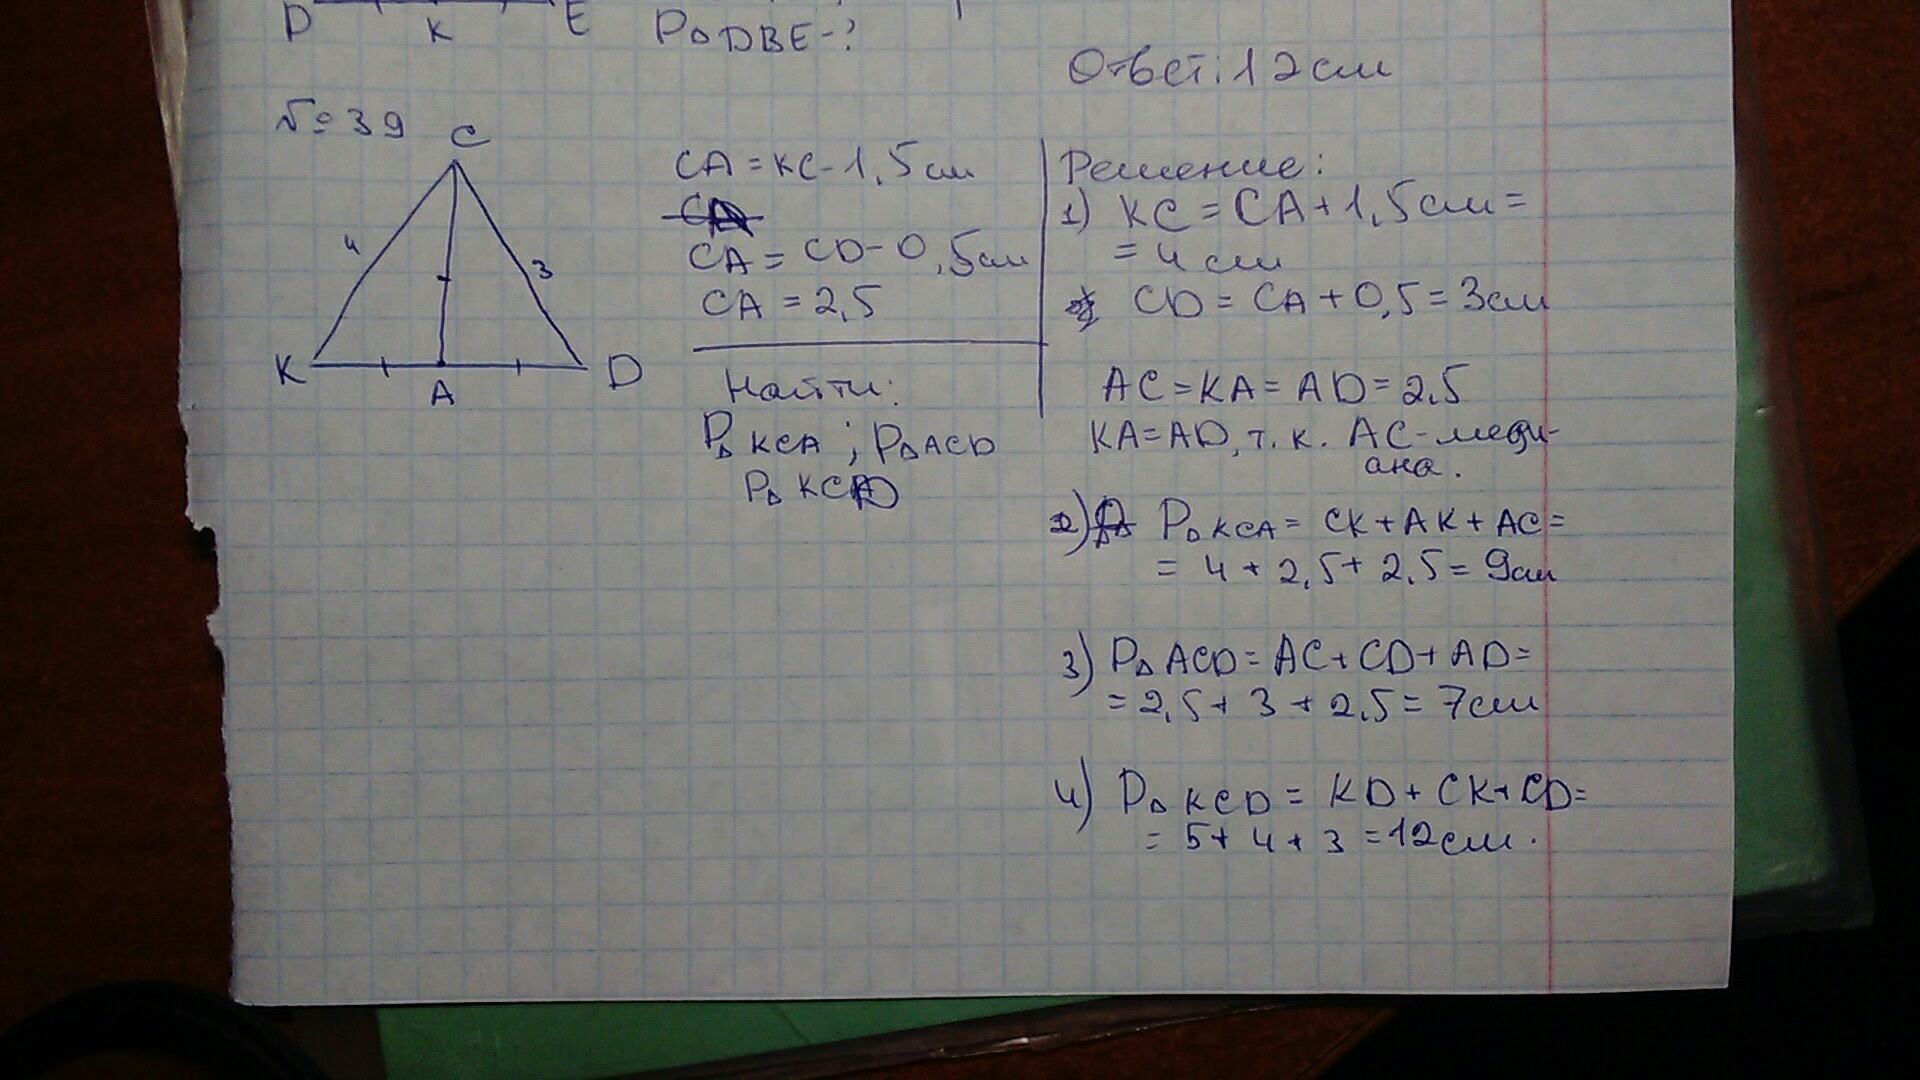 D K E PΔDBE-?
Ответ: 12см
№39
C
4
3
K
A
D
CA = KC - 1,5см
CA = CD - 0,5см
CA = 2,5
Найти:
PΔ KCA ; PΔ ACD
PΔ KCD
Решение:
1) KC = CA + 1,5см =
= 4см
CD = CA + 0,5 = 3см
AC = KA = AD = 2,5
KA = AD, т.к. AC - меди-
ана.
2) PΔ KCA = CK + AK + AC =
= 4 + 2,5 + 2,5 = 9см
3) PΔ ACD = AC + CD + AD =
= 2,5 + 3 + 2,5 = 7см
4) PΔ KCD = KD + CK + CD =
= 5 + 4 + 3 = 12см.